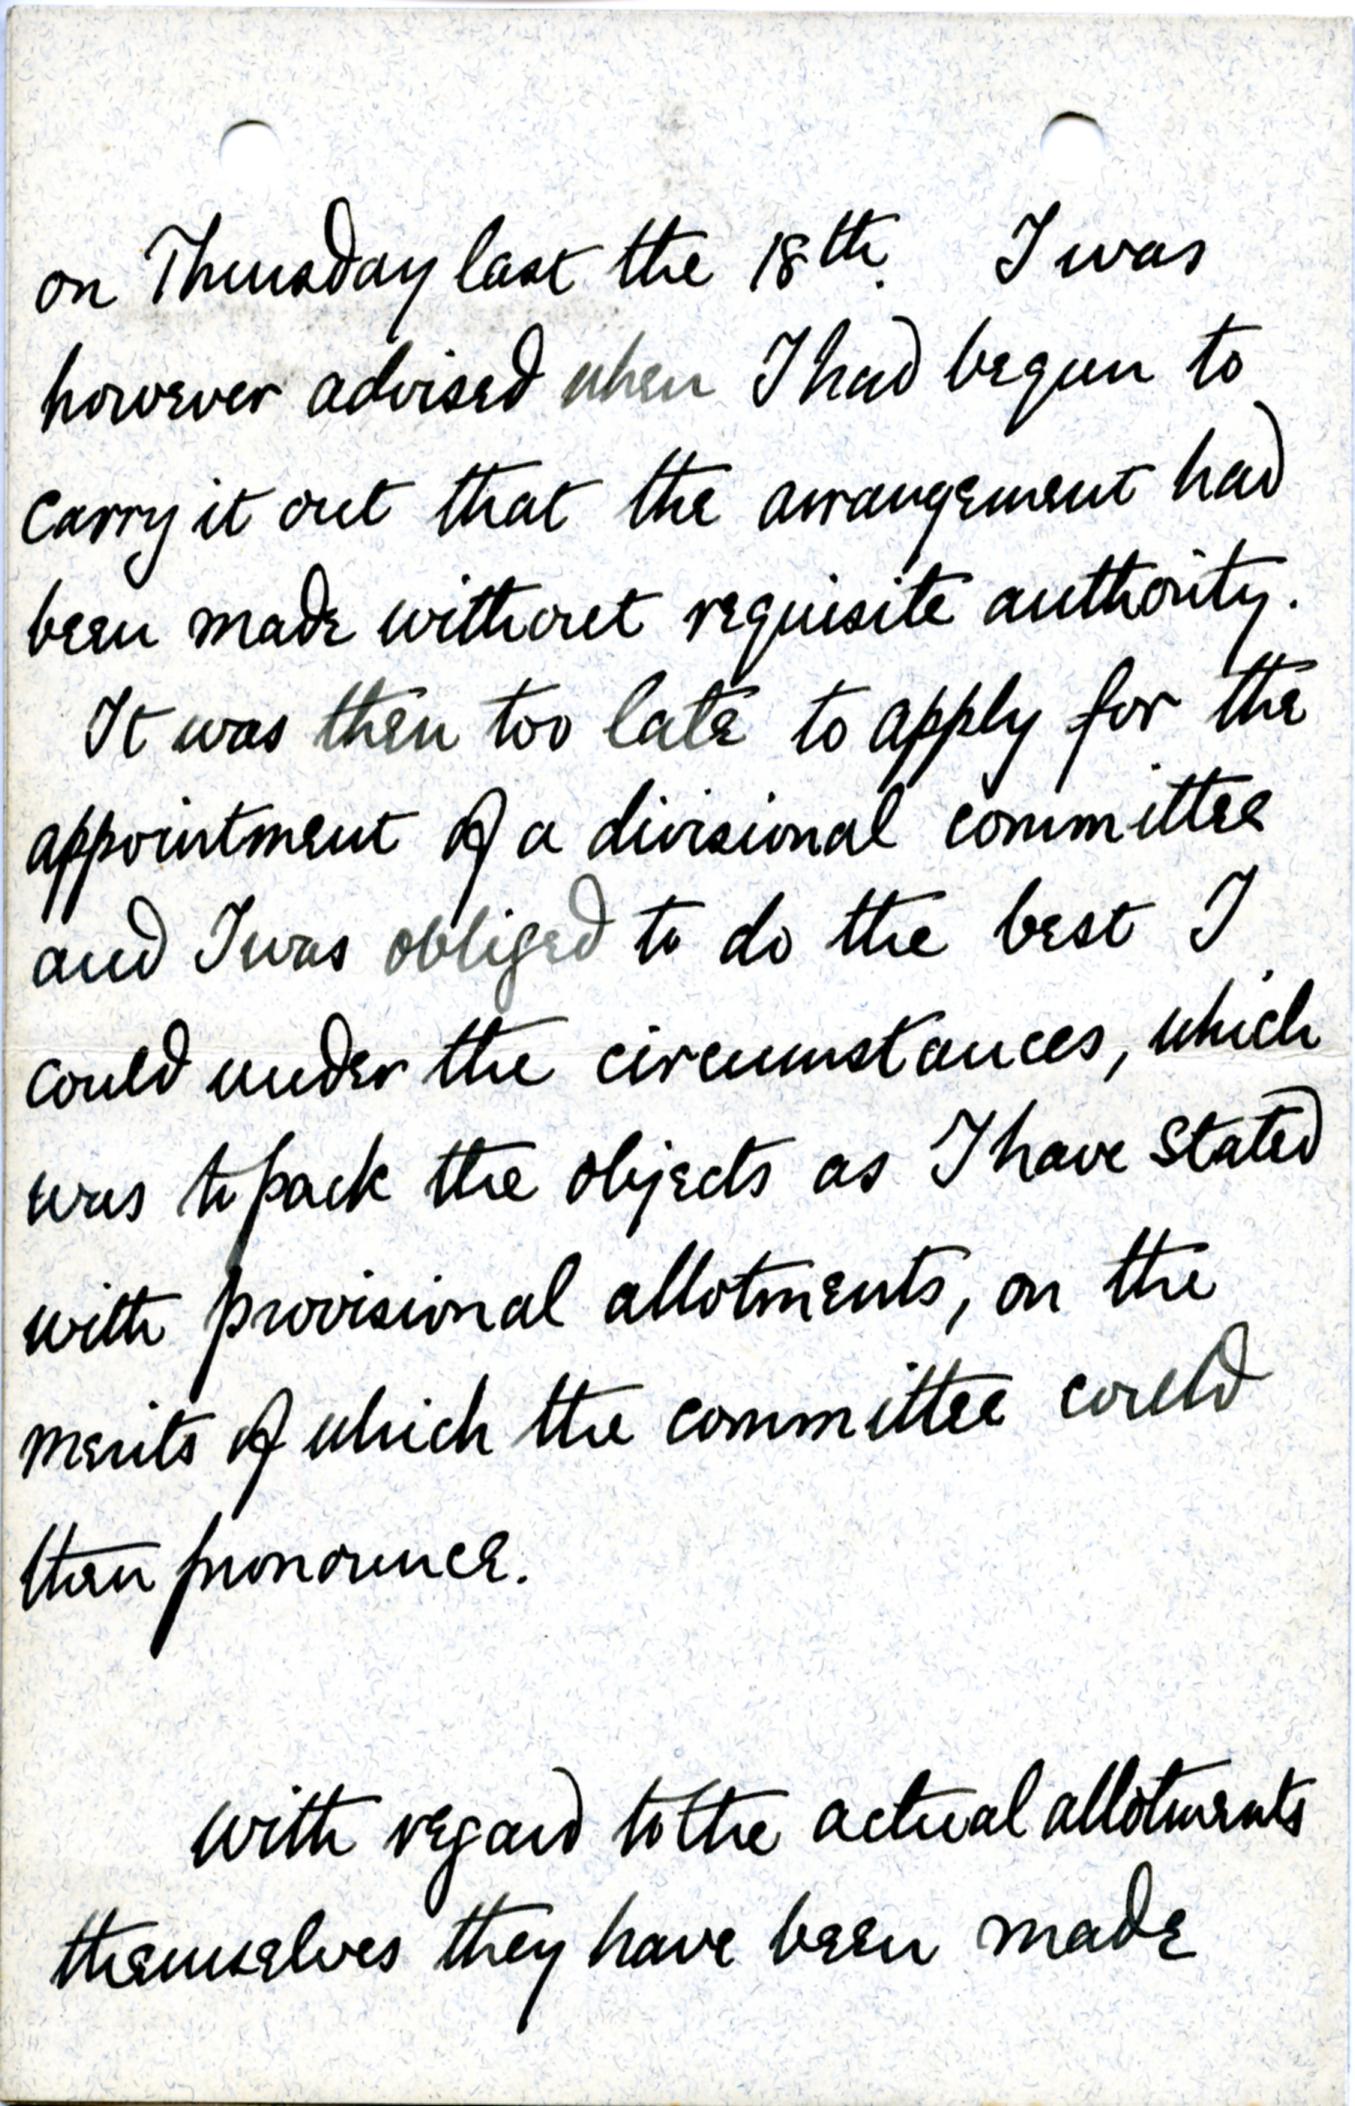 on Thursday last the 18th. I was
however advised when I had begun to
carry it out that the arrangement had
been made without requisite authority.
It was then too late to apply for the
appointment of a divisional committee
and I was obliged to do the best I
could under the circumstances, which
was to pack the objects as I have stated
with provisional allotments, on the
merits of which the committee could
then pronounce.
with regard to the actual allotments
themselves they have been made